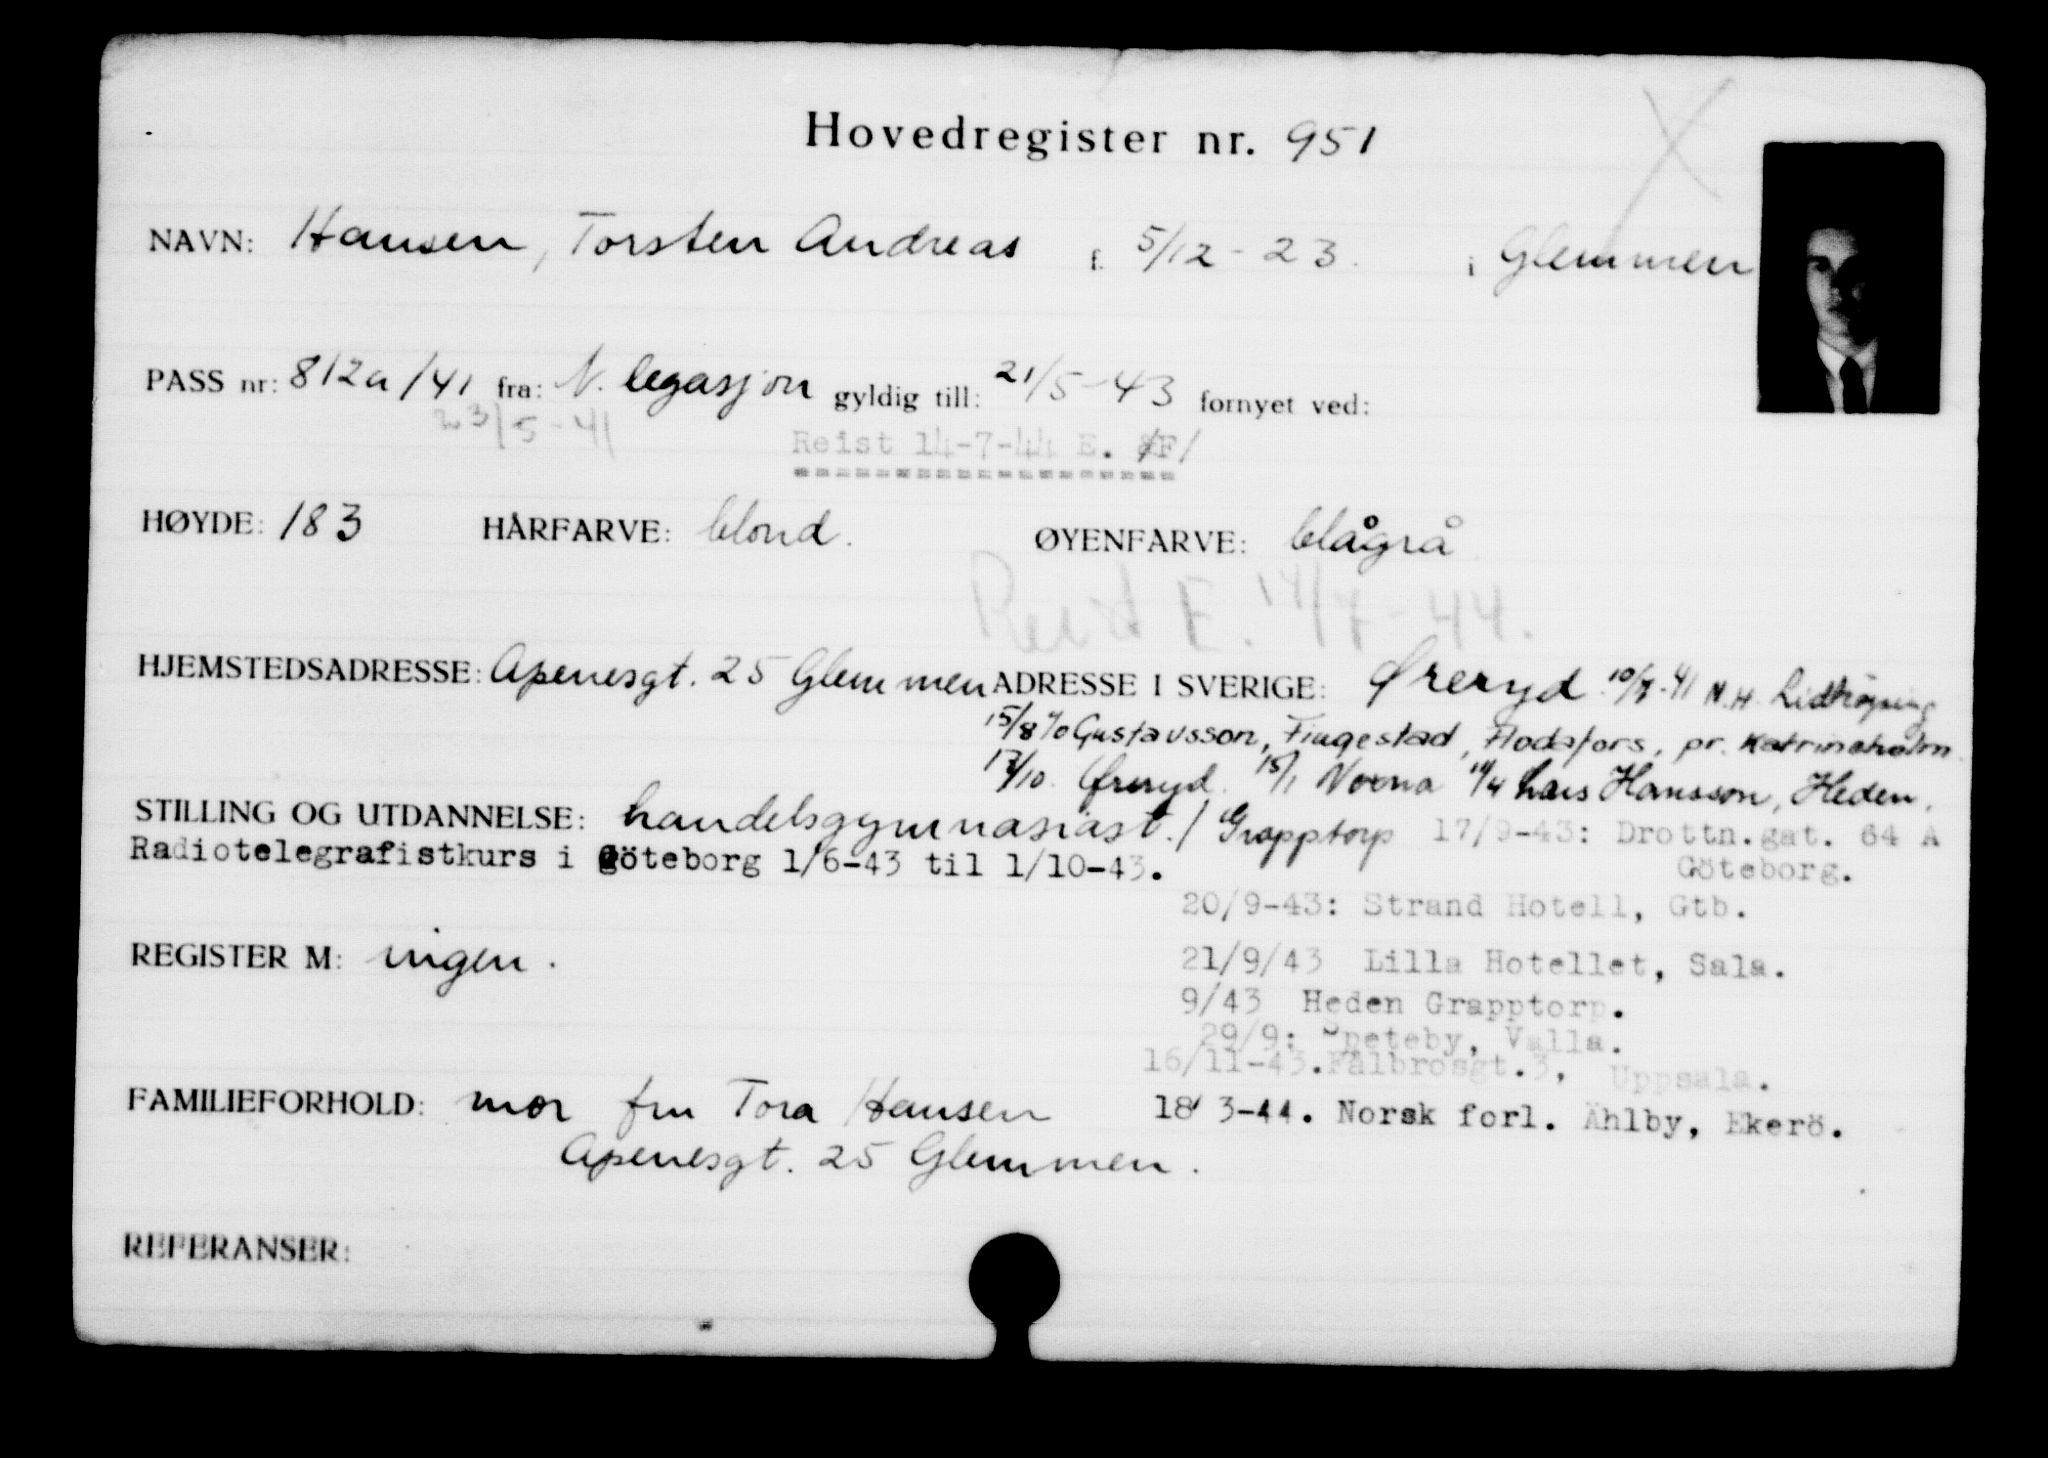 Hovedregister nr. 951
NAVN: Hansen, Torsten Andreas f. 5/12-23. i Glemmen
PASS nr: 812a/41 fra: N. legasjon gyldig till: 21/5-43 fornyet ved:
23/5-41
Reist 14-7-44 E. /F/
HØYDE: 183 HÅRFARVE: blond. ØYENFARVE: blågrå
Reist E. 14/7-44.
HJEMSTEDSADRESSE: Apenesgt. 25 Glemmen ADRESSE I SVERIGE: Øreryd 10/7-41 N.H. Lidköping
15/8 c/o Gustavsson, Fingestad, Flodafors, pr. Katrineholm.
17/10. Øreryd. 15/1 Norna 14/4 Lars Hansson, Heden,
STILLING OG UTDANNELSE: handelsgymnasiast. / Grapptorp 17/9-43: Drottn.gat. 64 A
Radiotelegrafistkurs i Göteborg 1/6-43 til 1/10-43. Göteborg.
20/9-43: Strand Hotell, Gtb.
REGISTER M: ingen. 21/9/43 Lilla Hotellet, Sala.
9/43 Heden Grapptorp.
29/9: Valla.
16/11-43. Fålbrosgt.3, Uppsala.
FAMILIEFORHOLD: mor fru Tora Hansen 18/ 3-44. Norsk forl. Ählby, Ekerö.
Apenesgt. 25 Glemmen.
REFERANSER: